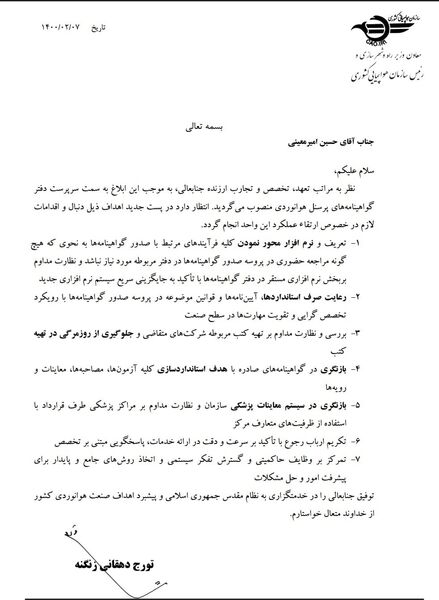 سازمان هواپیمایی کشوری
CAO.IRI
تاریخ ۱۴۰۰/۰۲/۰۷
معاون وزیر راه و شهرسازی و
رئیس سازمان هواپیمایی کشوری
بسمه تعالی
جناب آقای حسین امیرمعینی
سلام علیکم،
نظر به مراتب تعهد، تخصص و تجارب ارزنده جنابعالی، به موجب این ابلاغ به سمت سرپرست دفتر
گواهینامه‌های پرسنل هوانوردی منصوب می‌گردید. انتظار دارد در پست جدید اهداف ذیل دنبال و اقدامات
لازم در خصوص ارتقاء عملکرد این واحد انجام گردد.
۱- تعریف و نرم افزار محور نمودن کلیه فرآیندهای مرتبط با صدور گواهینامه‌ها به نحوی که هیچ
گونه مراجعه حضوری در پروسه صدور گواهینامه‌ها در دفتر مربوطه مورد نیاز نباشد و نظارت مداوم
بربخش نرم افزاری مستقر در دفتر گواهینامه‌ها با تأکید به جایگزینی سریع سیستم نرم افزاری جدید
۲- رعایت صرف استانداردها، آیین‌نامه‌ها و قوانین موضوعه در پروسه صدور گواهینامه‌ها با رویکرد
تخصص گرایی و تقویت مهارت‌ها در سطح صنعت
۳- بررسی و نظارت مداوم بر تهیه کتب مربوطه شرکت‌های متقاضی و جلوگیری از روزمرگی در تهیه
کتب
۴- بازنگری در گواهینامه‌های صادره با هدف استانداردسازی کلیه آزمون‌ها، مصاحبه‌ها، معاینات و
رویه‌ها
۵- بازنگری در سیستم معاینات پزشکی سازمان و نظارت مداوم بر مراکز پزشکی طرف قرارداد با
استفاده از ظرفیت‌های متعارف مرکز
۶- تکریم ارباب رجوع با تأکید بر سرعت و دقت در ارائه خدمات، پاسخگویی مبتنی بر تخصص
۷- تمرکز بر وظایف حاکمیتی و گسترش تفکر سیستمی و اتخاذ روش‌های جامع و پایدار برای
پیشرفت امور و حل مشکلات
توفیق جنابعالی را در خدمتگزاری به نظام مقدس جمهوری اسلامی و پیشبرد اهداف صنعت هوانوردی کشور
از خداوند متعال خواستارم.
تورج دهقانی زنگنه